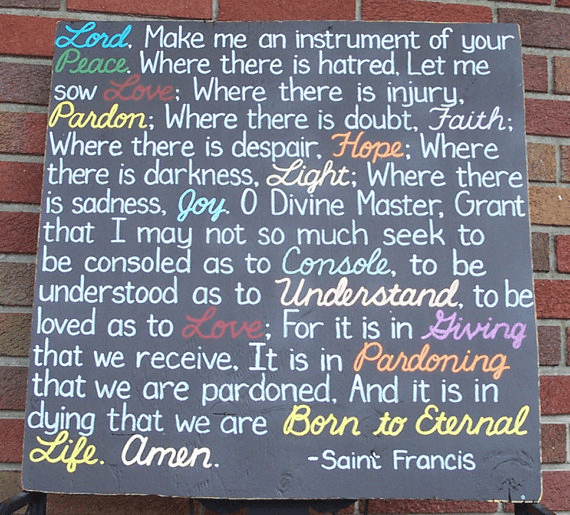 Lord, Make me an instrument of your
Peace. Where there is hatred, Let me
sow Love; Where there is injury,
Pardon; Where there is doubt, Faith;
Where there is despair, Hope; Where
there is darkness, Light; Where there
is sadness, Joy. O Divine Master, Grant
that I may not so much seek to
be consoled as to Console, to be
understood as to Understand, to be
loved as to Love; For it is in Giving
that we receive, It is in Pardoning
that we are pardoned, And it is in
dying that we are Born to Eternal
Life. Amen. -Saint Francis